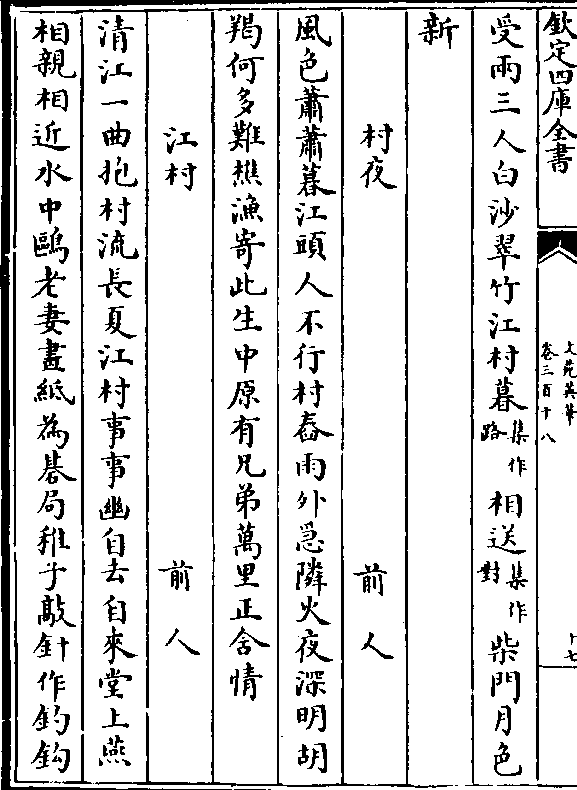 欽定四庫全書
文苑英華
卷三百十八
十七
受兩三人白沙翠竹江村暮集作路相送集作對柴門月色
新
村夜 前人
風色蕭蕭暮江頭人不行村舂雨外急隣火夜深明胡
羯何多難樵漁寄此生中原有兄弟萬里正含情
江村 前人
清江一曲抱村流長夏江村事事幽自去自來堂上燕
相親相近水中鷗老妻畫紙為棊局稚子敲針作釣鈎